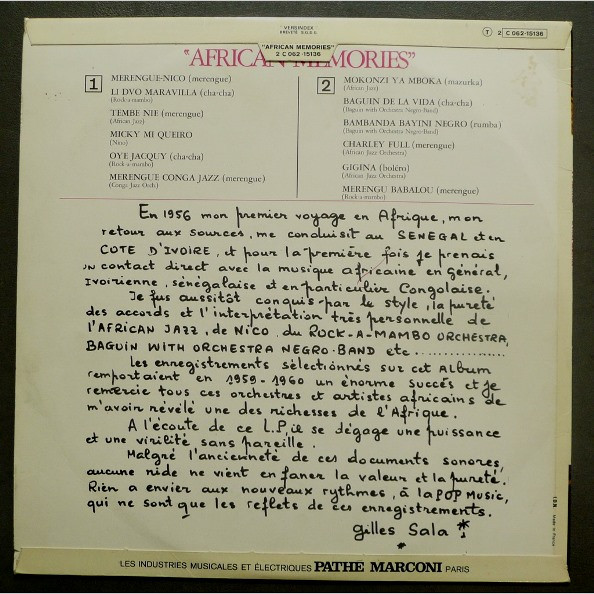 VERSINDEX
BREVETÉ S.G.D.G.
T 2 C 062-15136
"AFRICAN MEMORIES"
2 C 062-15136
"AFRICAN MEMORIES"
1
MERENGUE-NICO (merengue)
LI DVO MARAVILLA (cha-cha)
(Rock-a-mambo)
TEMBE NIE (merengue)
(African Jazz)
MICKY MI QUEIRO
(Nino)
OYE JACQUY (cha-cha)
(Rock-a-mambo)
MERENGUE CONGA JAZZ (merengue)
(Conga Jazz Orch.)
2
MOKONZI YA MBOKA (mazurka)
(African Jazz)
BAGUIN DE LA VIDA (cha-cha)
(Baguin with Orchestra Negro-Band)
BAMBANDA BAYINI NEGRO (rumba)
(Baguin with Orchestra Negro-Band)
CHARLEY FULL (merengue)
(African Jazz Orchestra)
GIGINA (boléro)
(African Jazz Orchestra)
MERENGU BABALOU (merengue)
(Rock-a-mambo)
En 1956 mon premier voyage en Afrique, mon
retour aux sources, me conduisit au SENEGAL et en
COTE D'IVOIRE, et pour la première fois je prenais
un contact direct avec la musique africaine en général,
Ivoirienne, sénégalaise et en particulier Congolaise.
Je fus aussitôt conquis par le style, la pureté
des accords et l'interprétation très personnelle de
l'AFRICAN JAZZ, de NICO, du ROCK-A-MAMBO ORCHESTRA,
BAGUIN WITH ORCHESTRA NEGRO-BAND etc ..............
les enregistrements sélectionnés sur cet Album
remportaient en 1959-1960 un énorme succés et je
remercie tous ces orchestres et artistes africains de
m'avoir révélé une des richesses de l'Afrique.
A l'écoute de ce L.P, il se dégage une puissance
et une virilité sans pareille.
Malgré l'ancienneté de ces documents sonores,
aucune ride ne vient en faner la valeur et la pureté.
Rien a envier aux nouveaux rythmes, à la POP MUSIC,
qui ne sont que les reflets de ces enregistrements.
Gilles Sala
Made in France
LES INDUSTRIES MUSICALES ET ÉLECTRIQUES PATHE MARCONI PARIS